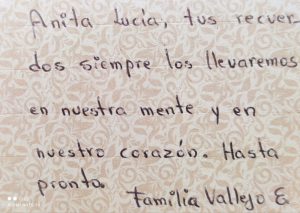 Anita Lucía, tus recuer
dos siempre los llevaremos
en nuestra mente y en
nuestro corazón. Hasta
pronto. Familia Vallejo E